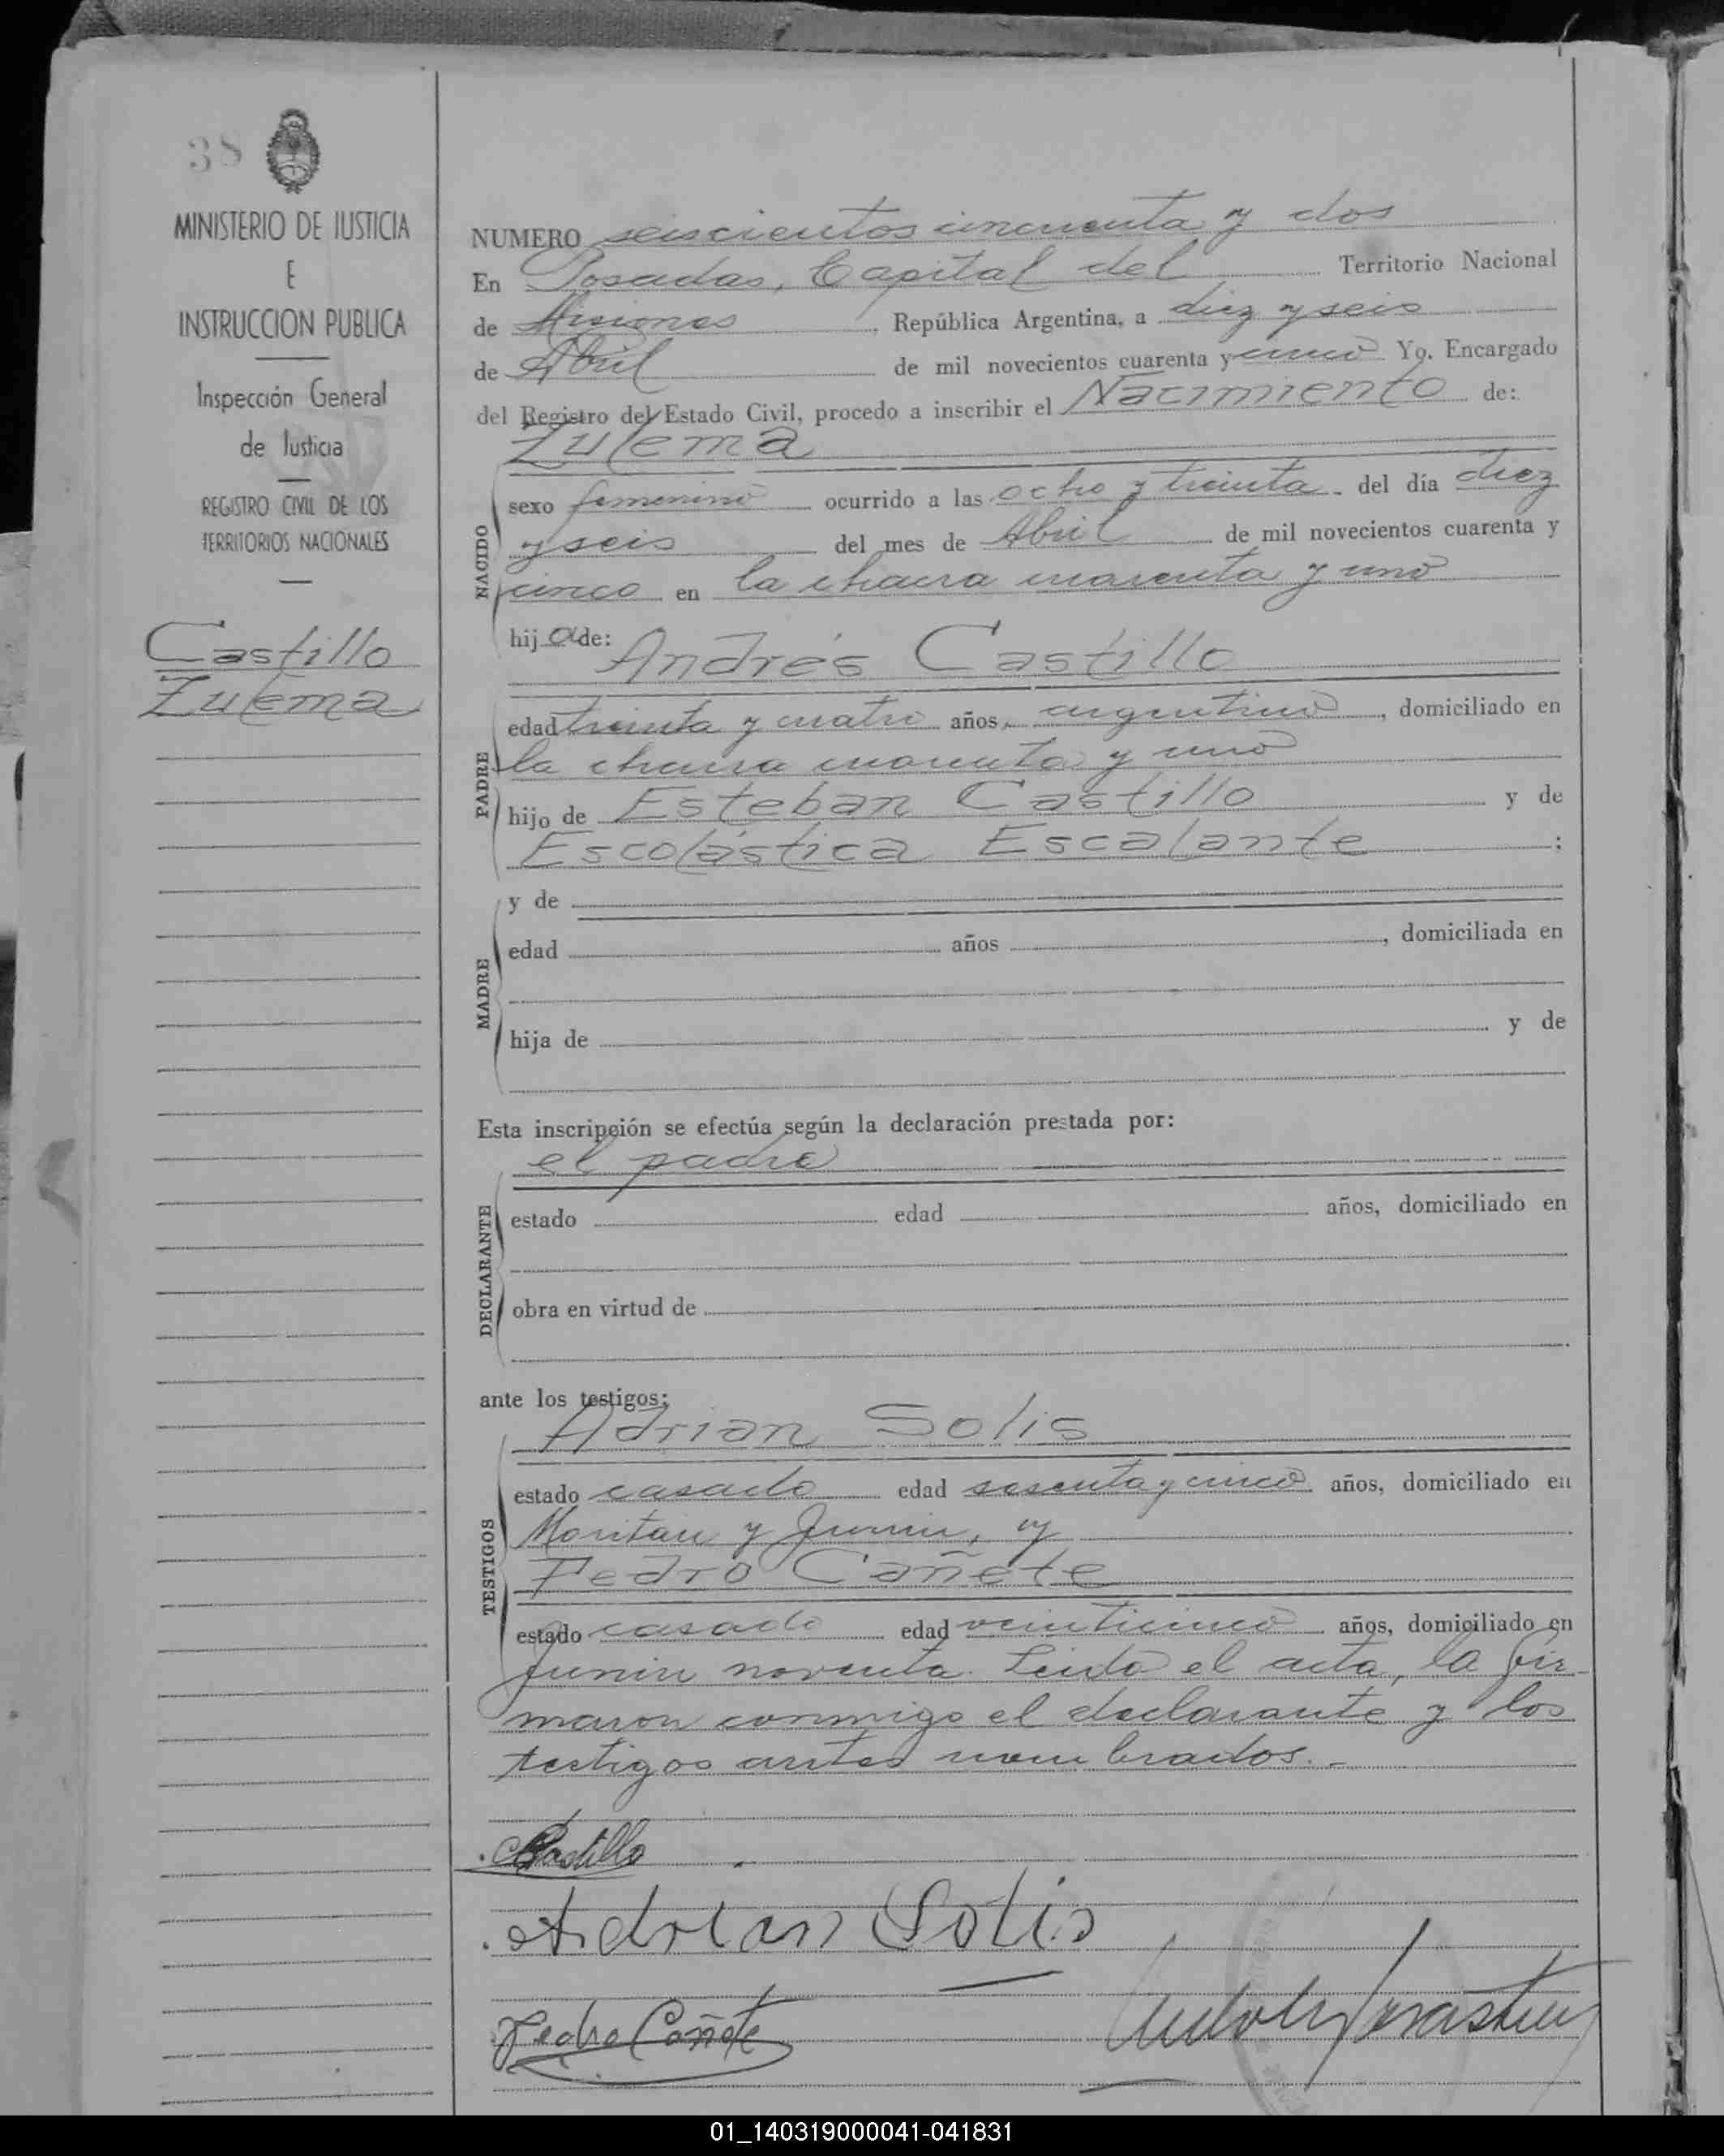 38
MINISTERIO DE JUSTICIA
E
INSTRUCCION PUBLICA
Inspección General
de Justicia
REGISTRO CIVIL DE LOS
TERRITORIOS NACIONALES
Castillo
Zulema
NUMERO seiscientos cincuenta y dos
En Posadas, Capital del Territorio Nacional
de Misiones, República Argentina, a diez y seis
de Abril de mil novecientos cuarenta y cinco Yo, Encargado
del Registro del Estado Civil, procedo a inscribir el Nacimiento de:
Zulema
NACIDO
sexo femenino ocurrido a las ocho y treinta del día diez
y seis del mes de Abril de mil novecientos cuarenta y
cinco en la chacra cuarenta y uno
hija de:
Andrés Castillo
PADRE
edad treinta y cuatro años, argentino, domiciliado en
la chacra cuarenta y uno
hijo de Esteban Castillo y de
Escolástica Escalante;
MADRE
y de
edad años, domiciliada en
hija de y de
Esta inscripción se efectúa según la declaración prestada por:
el padre
DECLARANTE
estado edad años, domiciliado en
obra en virtud de
ante los testigos:
Adrian Solis
TESTIGOS
estado casado edad sesenta y cinco años, domiciliado en
y Junin, y
Pedro Cañete
estado casado edad veinticinco años, domiciliado en
Junin noventa. Leida el acta, la fir-
maron conmigo el declarante y los
testigos antes nombrados.-
Castillo
Adrian Solis
Pedro Cañete
01_140319000041-041831